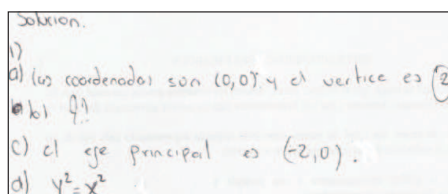 Solucion.
1)
a) las coordenadas son (0,0) y el vertice es 2
b) ¿?
c) el eje principal es (-2,0).
d) y² = x²